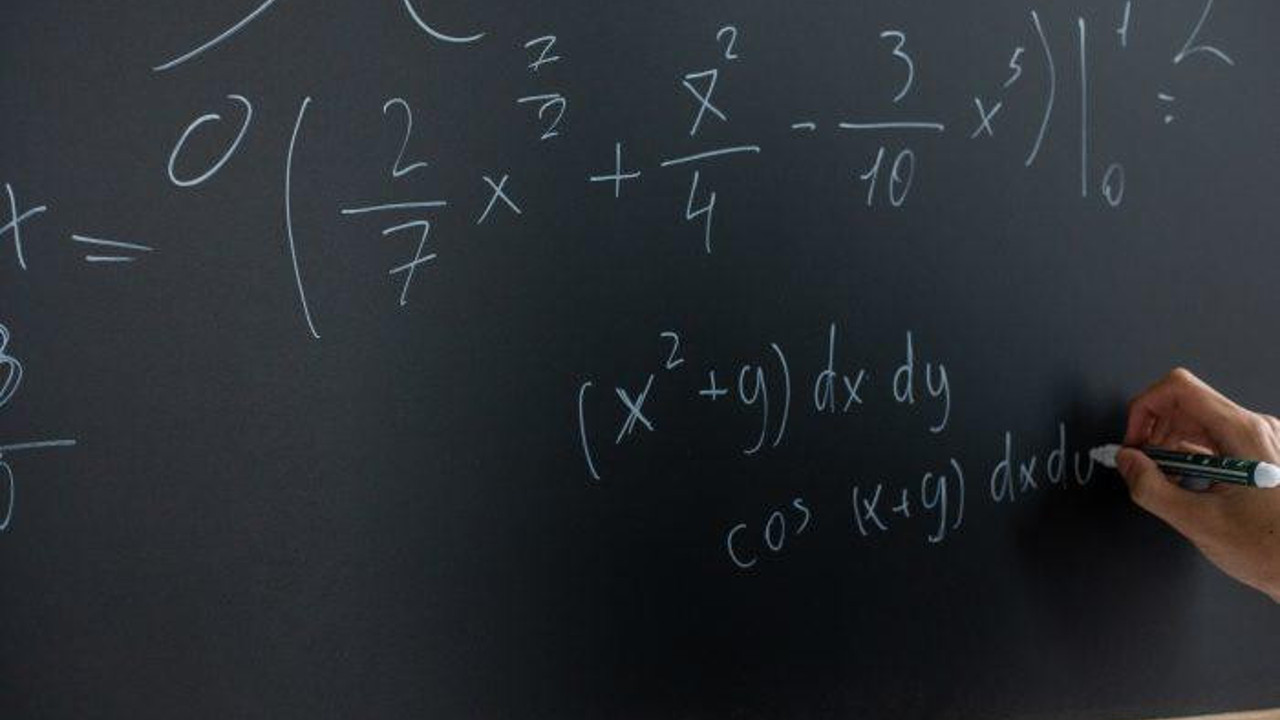 x = 0 ( 2/7 x^(7/2) + x^2/4 - 3/10 x^5 ) |_0^1 =
(x^2 + y) dx dy
cos (x+y) dx dy